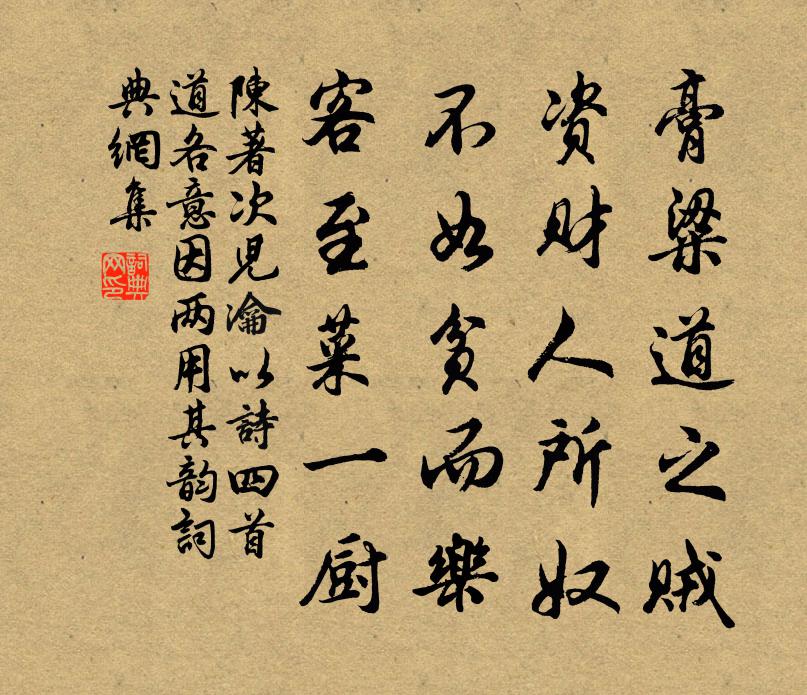 膏粱道之賊
资財人所奴
不如貧而樂
客至菜一厨
陳著次児瀹以詩四首
道各意因两用其韵詞
典網集
詞典
网印